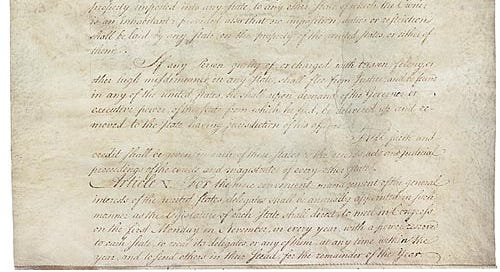 property imported into any state, to any other state of which the Owner
is an inhabitant; provided also that no imposition, duties or restriction
shall be laid by any state, on the property of the united states, or either of
them.
If any Person guilty of, or charged with treason, felony, or
other high misdemeanor in any state, shall flee from Justice, and be found
in any of the united states, he shall upon demand of the Governor or
executive power, of the state from which he fled, be delivered up and re-
moved to the state having jurisdiction of his offence.
Full faith and
credit shall be given in each of these states to the records, acts and judicial
proceedings of the courts and magistrates of every other state.
Article V. For the more convenient management of the general
interests of the united states, delegates shall be annually appointed in such
manner as the legislature of each state shall direct, to meet in Congress
on the first Monday in November, in every year, with a power reserved
to each state, to recal its delegates, or any of them, at any time within the
year, and to send others in their stead, for the remainder of the Year.